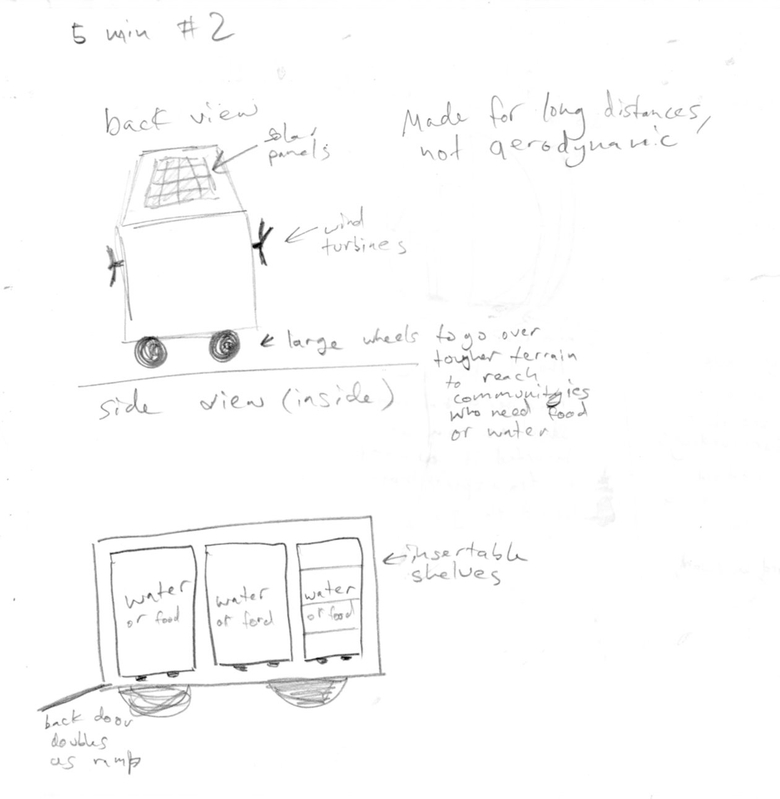 5 min #2
back view
solar
panels
Made for long distances,
not aerodynamic
wind
turbines
large wheels to go over
tougher terrain
to reach
communities
who need food
or water
side view (inside)
insertable
shelves
water
or food
water
or food
water
or food
back door
doubles
as ramp